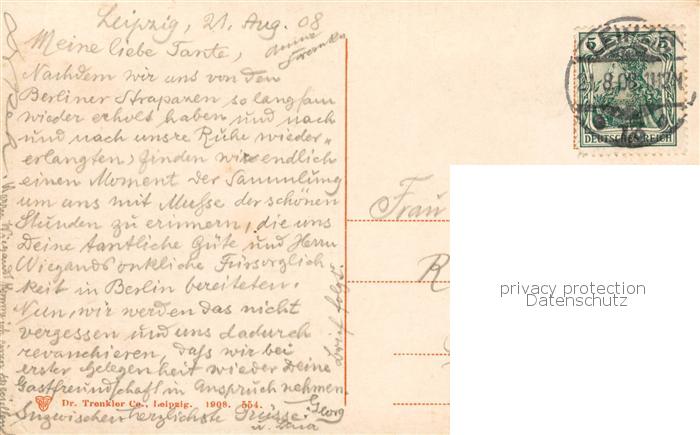 Leipzig, 21. Aug. 08
Meine liebe Tante,
Nachdem wir uns von den
Berliner Strapazen so langsam
wieder erholt haben und nach
und nach unsre Ruhe wieder=
erlangten, finden wir endlich
einen Moment der Sammlung
um uns mit Musse der schönen
Stunden zu erinnern, die uns
Deine tantliche Güte und Herrn
Wiegands onkliche Fürsorglich
keit in Berlin bereiteten.
Nun, wir werden das nicht
vergessen und uns dadurch
revanchieren, daß wir bei
erster Gelegenheit wieder Deine
Gastfreundschaft in Anspruch nehmen
Inzwischen herzlichste Grüsse: Georg
u.
Brief folgt.
Dr. Trenkler Co., Leipzig. 1908. 554.
Frau
R
LEIPZIG
21.8.08
5 5
DEUTSCHES REICH
privacy protection
Datenschutz